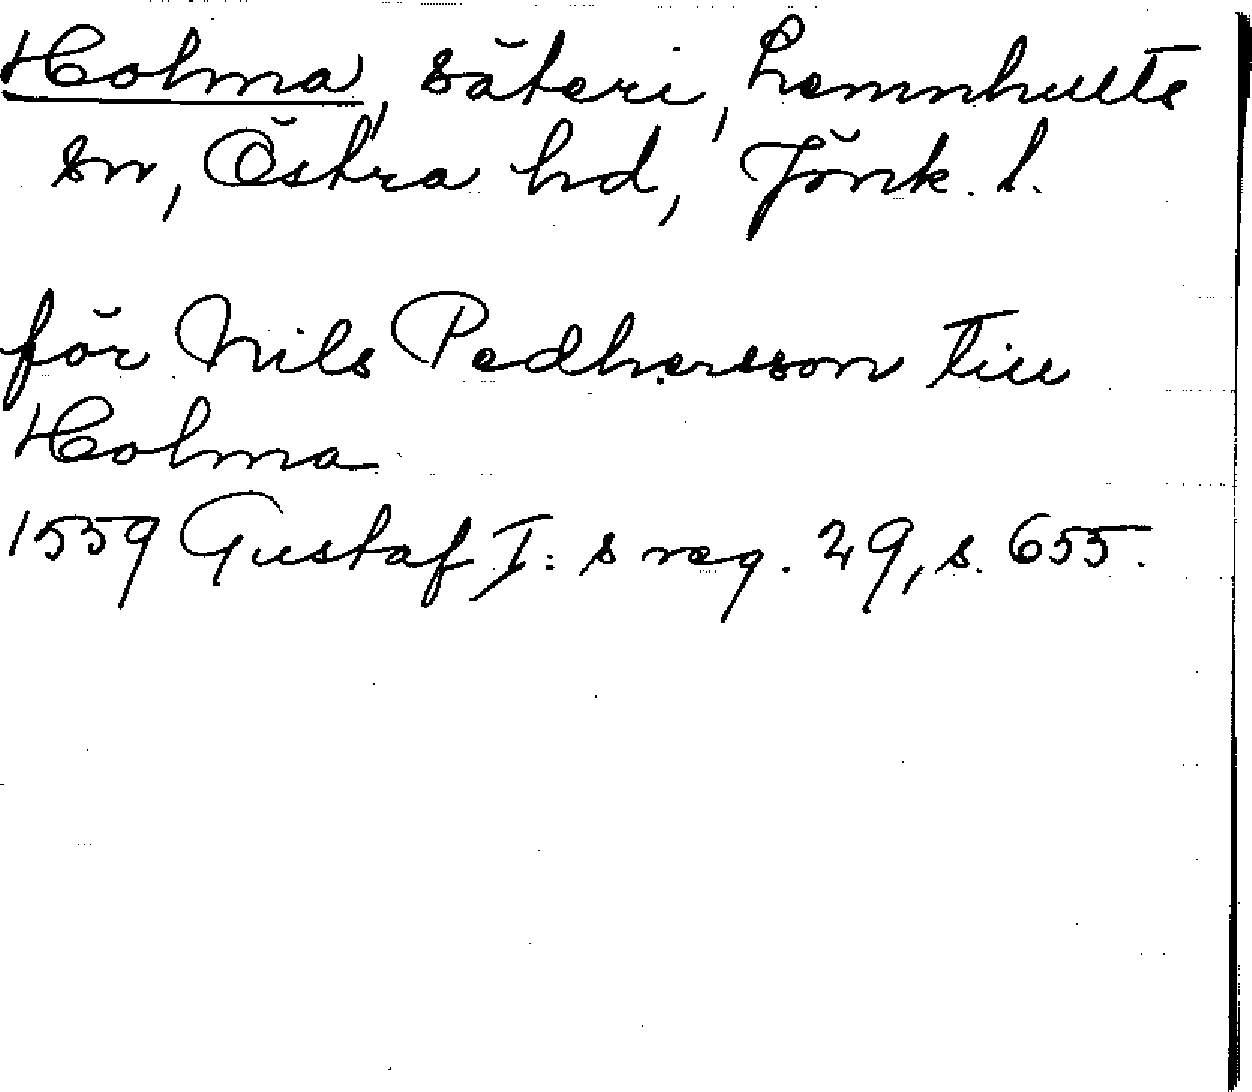 Holma, säteri, Lemnhults
sn, Östra hd, Jönk. l.
för Nils Pedhersson till
Holma
1559 Gustaf I:s reg. 29, s. 655.